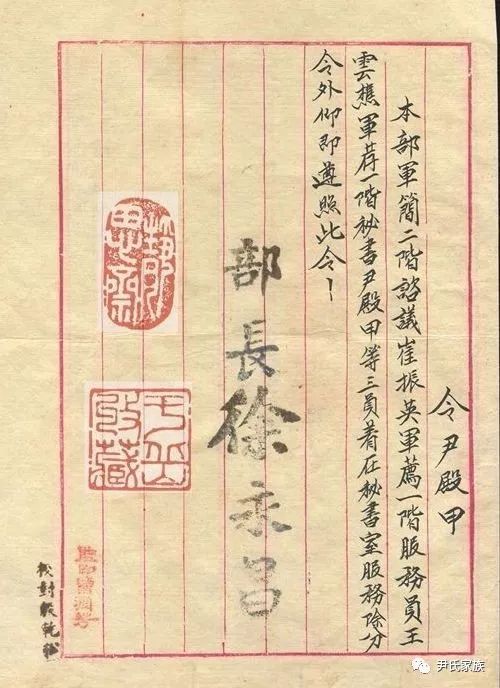 令尹殿甲
本部軍簡二階諮議崔振英軍薦一階服務員王
雲樵軍荐一階秘書尹殿甲等三員着在秘書室服務除分
令外仰即遵照此令
部長徐永昌
監印
校對
尹氏家族